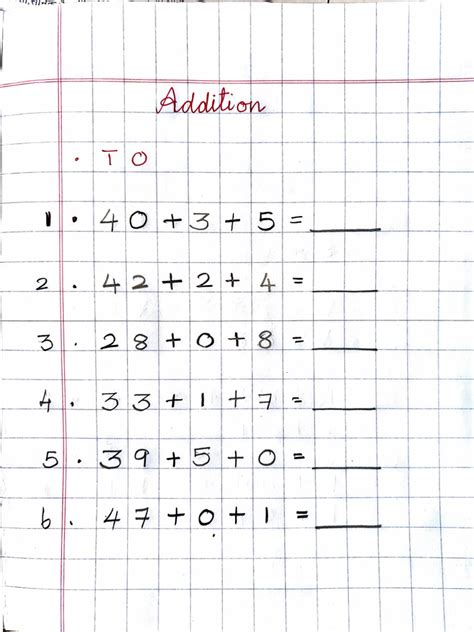 Addition
. T O
1. 40 + 3 + 5 = ____
2. 42 + 2 + 4 = ____
3. 28 + 0 + 8 = ____
4. 33 + 1 + 7 = ____
5. 39 + 5 + 0 = ____
6. 47 + 0 + 1 = ____